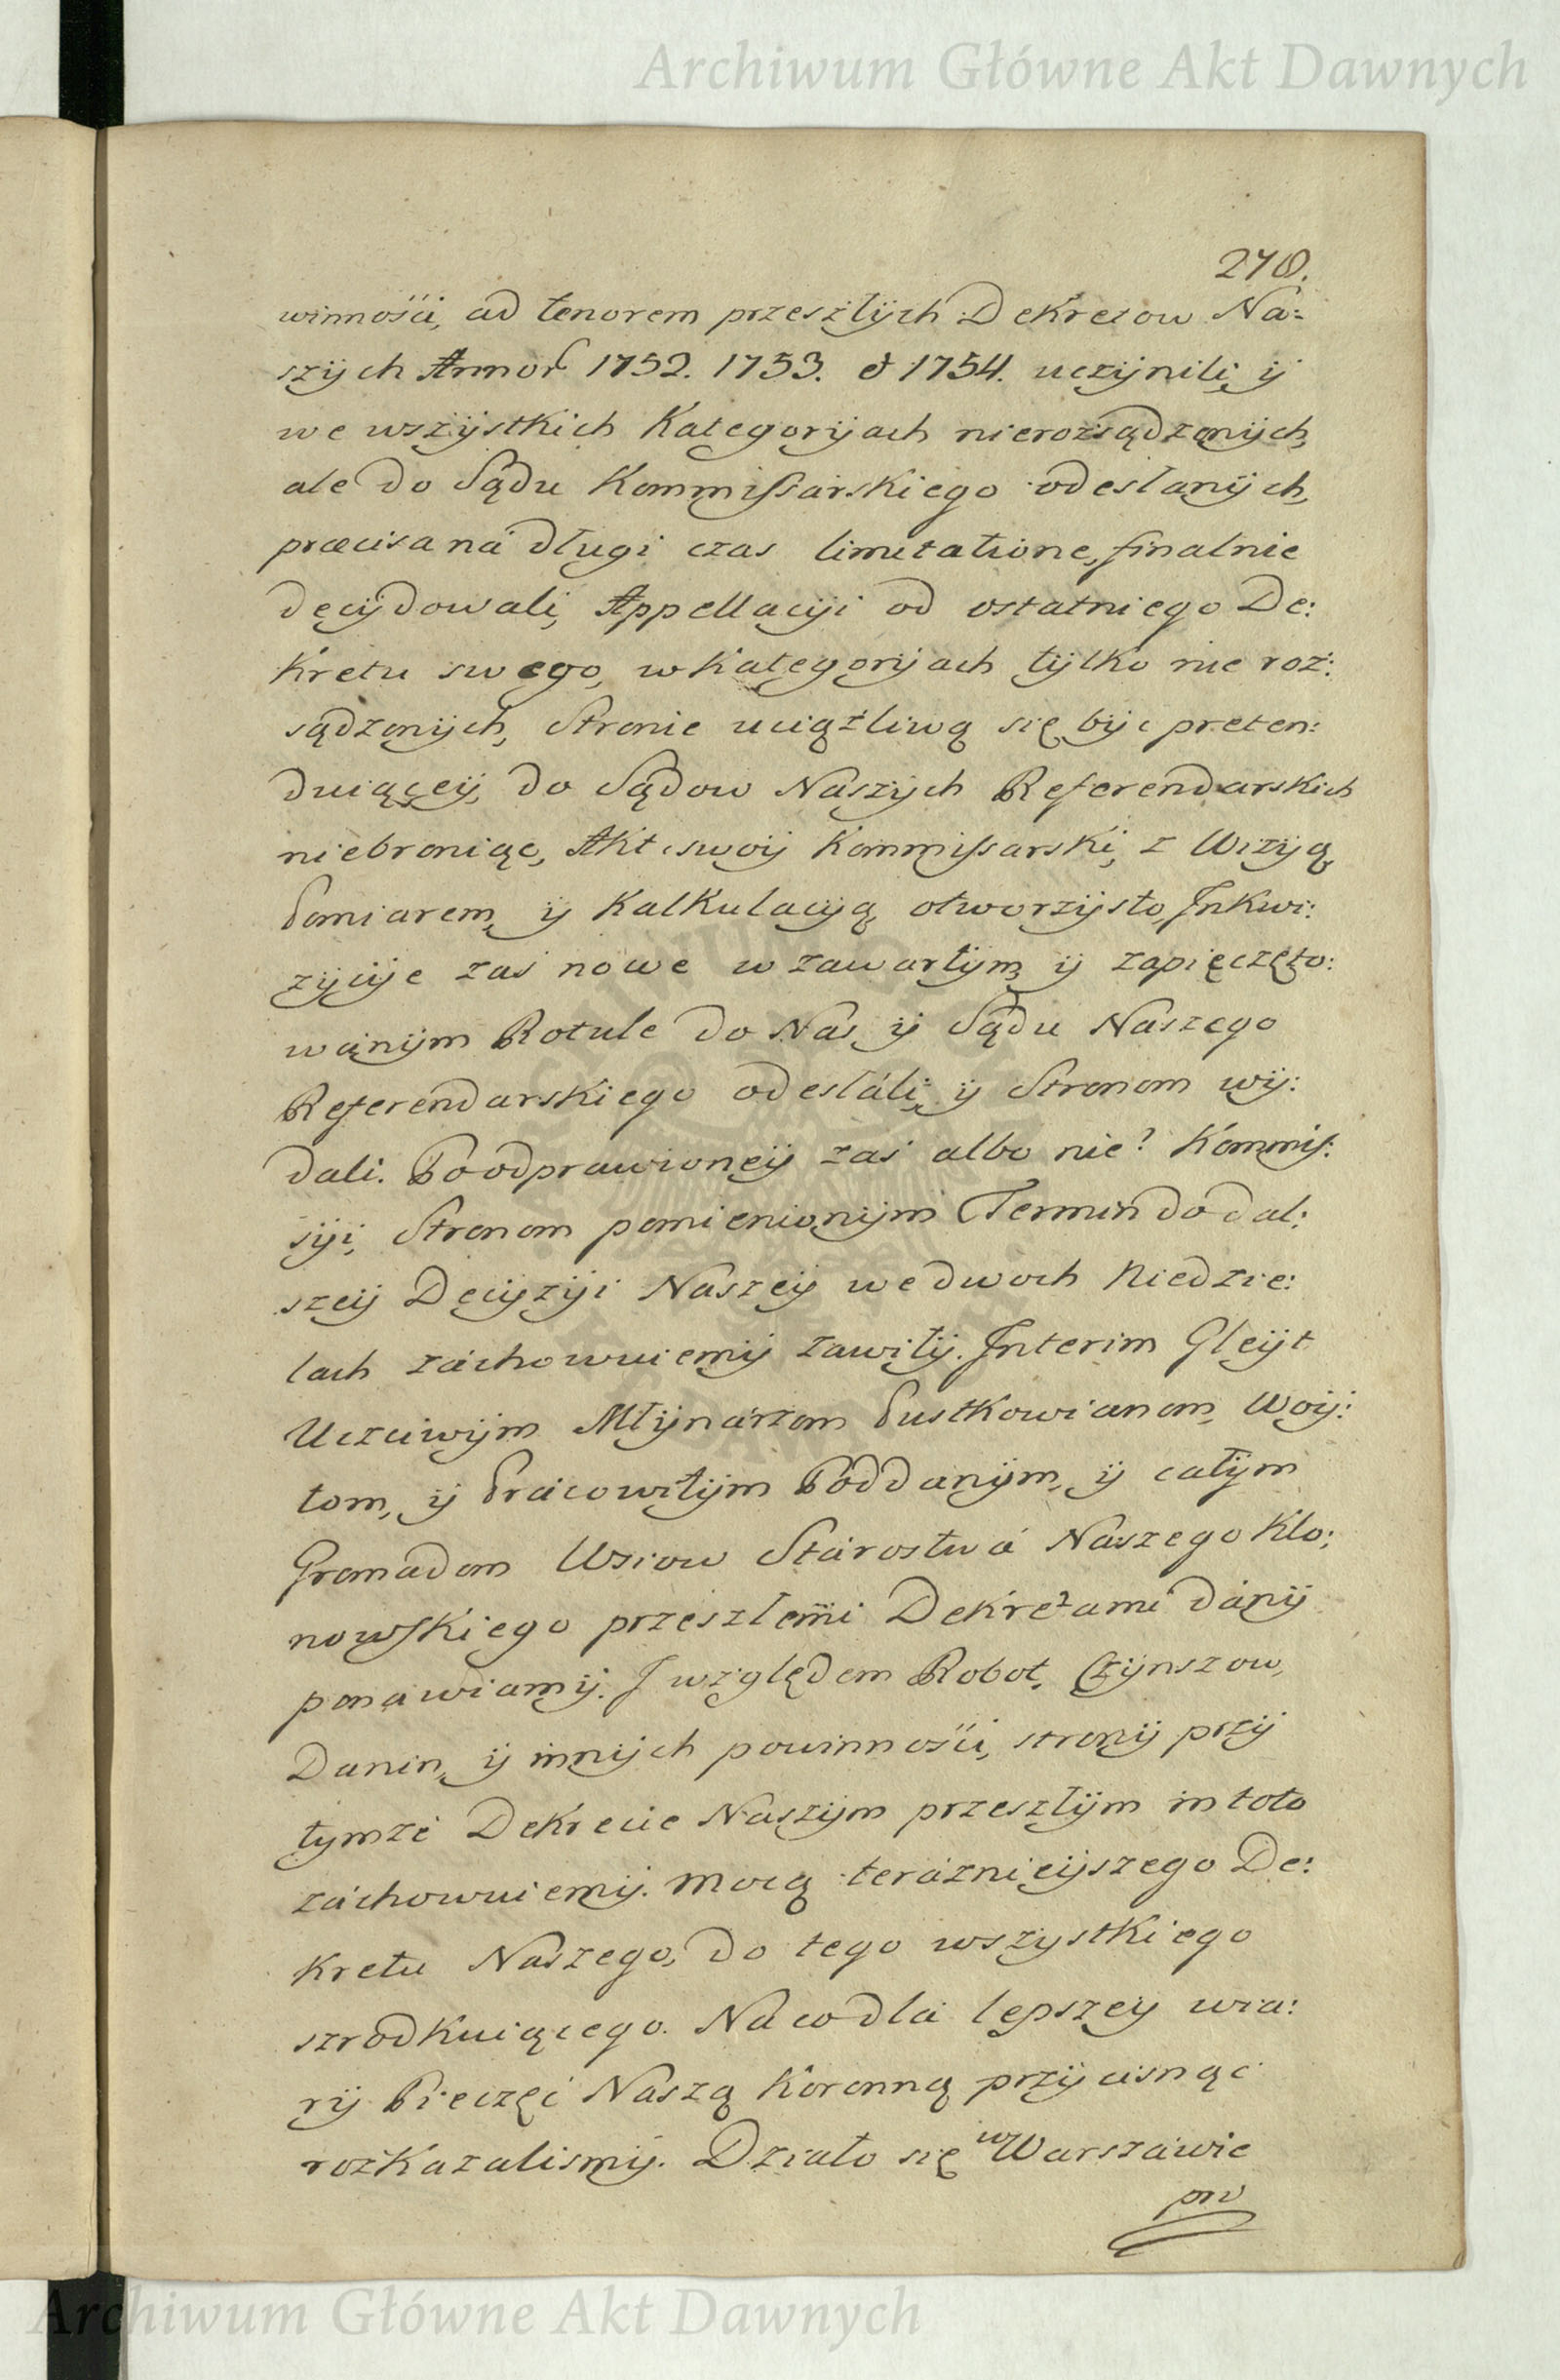 Archiwum Główne Akt Dawnych
278.
winnośći, ad tenorem przeszłych Dekretow Na:
szych Annor 1752. 1753. et 1754. uczynili, y
we wszystkich Kategoryach nierozsądzonych,
ale do Sądu Kommissarskiego odesłanych,
præcisa ná długi czas limitatione, finalnie
decydowali, Appellacyi od ostatniego De:
kretu swego, w Kategoryach tylko nie roz:
sądzonych, Stronie uciążliwą się byc preten:
duiącey, do Sądow Naszych Referendarskich
niebroniąc, Akt swoy Kommissarski, z Wizyą
Pomiarem, y Kalkulacyą otworzysto, Inkwi:
zycye zaś nowe w zawartym y zapieczęto:
wánym Rotule do Nas y Sądu Naszego
Referendarskiego odesłáli, y Stronom wy:
dali. Po odprawioney zaś albo nie? Kommis:
syi, Stronom pomienionym Termin do dal:
szey Decyzyi Naszey we dwoch Niedzie:
lach záchowuiemy zawity. Interim Gleyt
Uczciwym Młynárzom Pustkowianom, Woy:
tom, y Prácowitym Poddanym, y całym
Gromadom Wsiow Stárostwá Naszego Kło:
nowskiego przeszłemi Dekretami dány
ponawiamy. I względem Robot, Czynszow,
Danin, y innych powinnośći, strony przy
tymże Dekrecie Naszym przeszłym in toto
záchowuiemy. Mocą teráznieyszego De:
kretu Naszego, do tego wszystkiego
szrodkuiącego. Na co dla lepszey wia:
ry Pieczęć Naszą Koronną przycisnąć
rozkazalismy. Działo się w Warszáwie
Archiwum Główne Akt Dawnych